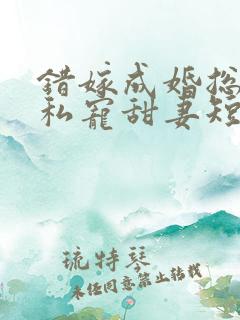 錯嫁成婚总
私寵甜妻短
琉特琴
未经同意禁止转载